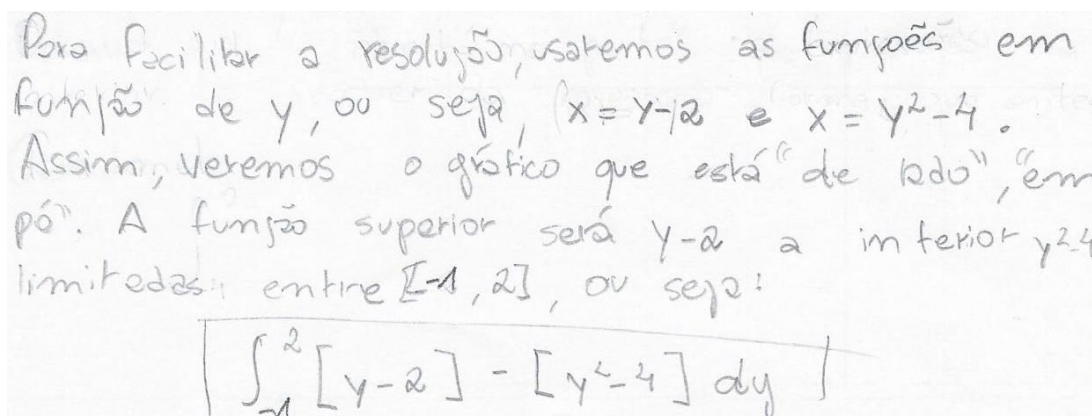 Para facilitar a resolução, usaremos as funções em
função de y, ou seja, x = y-2 e x = y²-4.
Assim, veremos o gráfico que está "de lado", "em
pé". A função superior será y-2 a inferior y²-4
limitadas entre [-1, 2], ou seja:
∫₋₁² [y-2] - [y²-4] dy